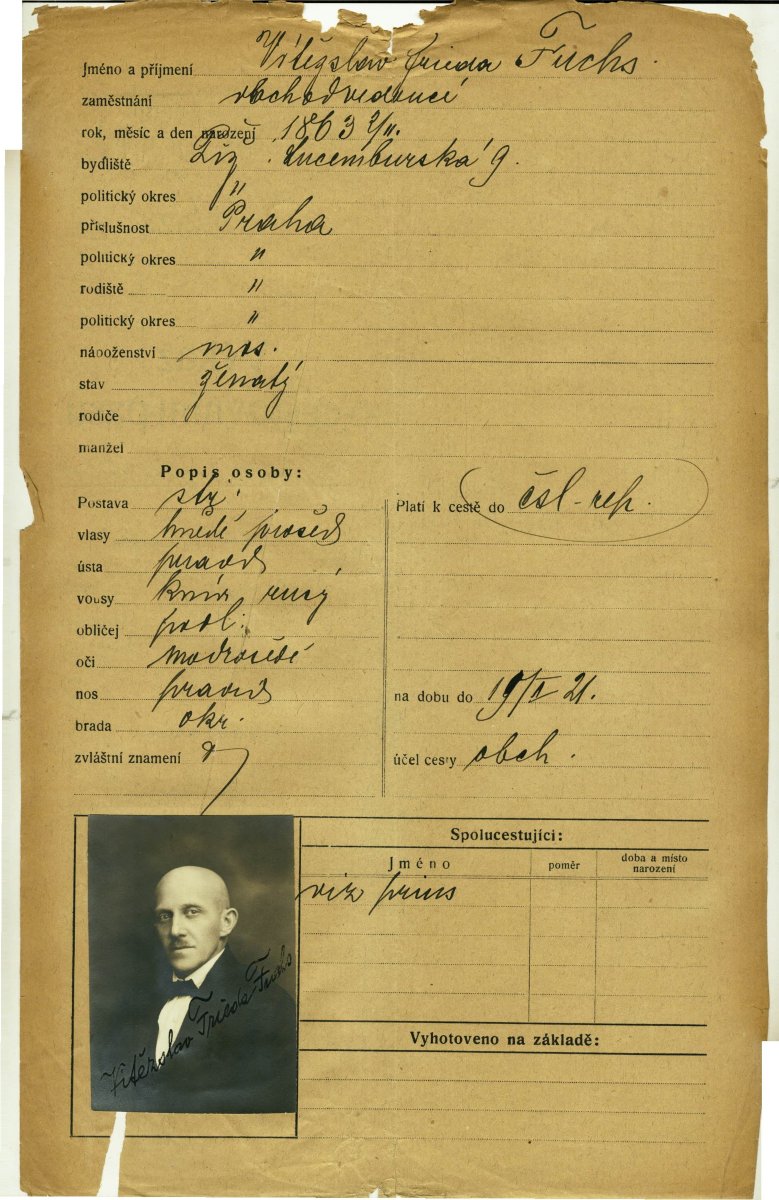 Jméno a příjmení Vítězslav Frieda Fuchs.
zaměstnání obchodvedoucí
rok, měsíc a den narození 1863 2/11.
bydliště Žiž. Lucemburská 9.
politický okres "
příslušnost Praha
politický okres "
rodiště "
politický okres "
náboženství mos.
stav ženatý
rodiče
manžel
Popis osoby:
Postava stř.
vlasy hnědé prošed
ústa pravid
vousy knír rusý
obličej podl.
oči modrošedé
nos pravid
brada okr.
zvláštní znamení
Platí k cestě do čsl-rep.
na dobu do 19/II 21.
účel cesty obch.
Vítězslav Frieda Fuchs
Spolucestující:
Jméno poměr doba a místo
narození
viz prius
Vyhotoveno na základě: